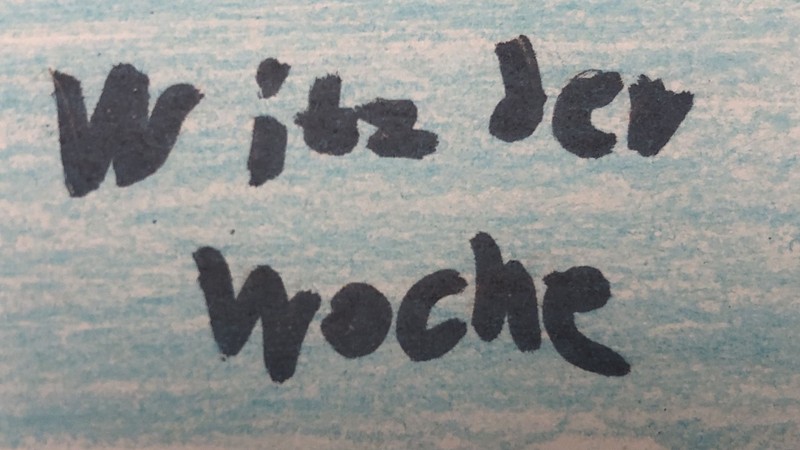 Witz der
Woche